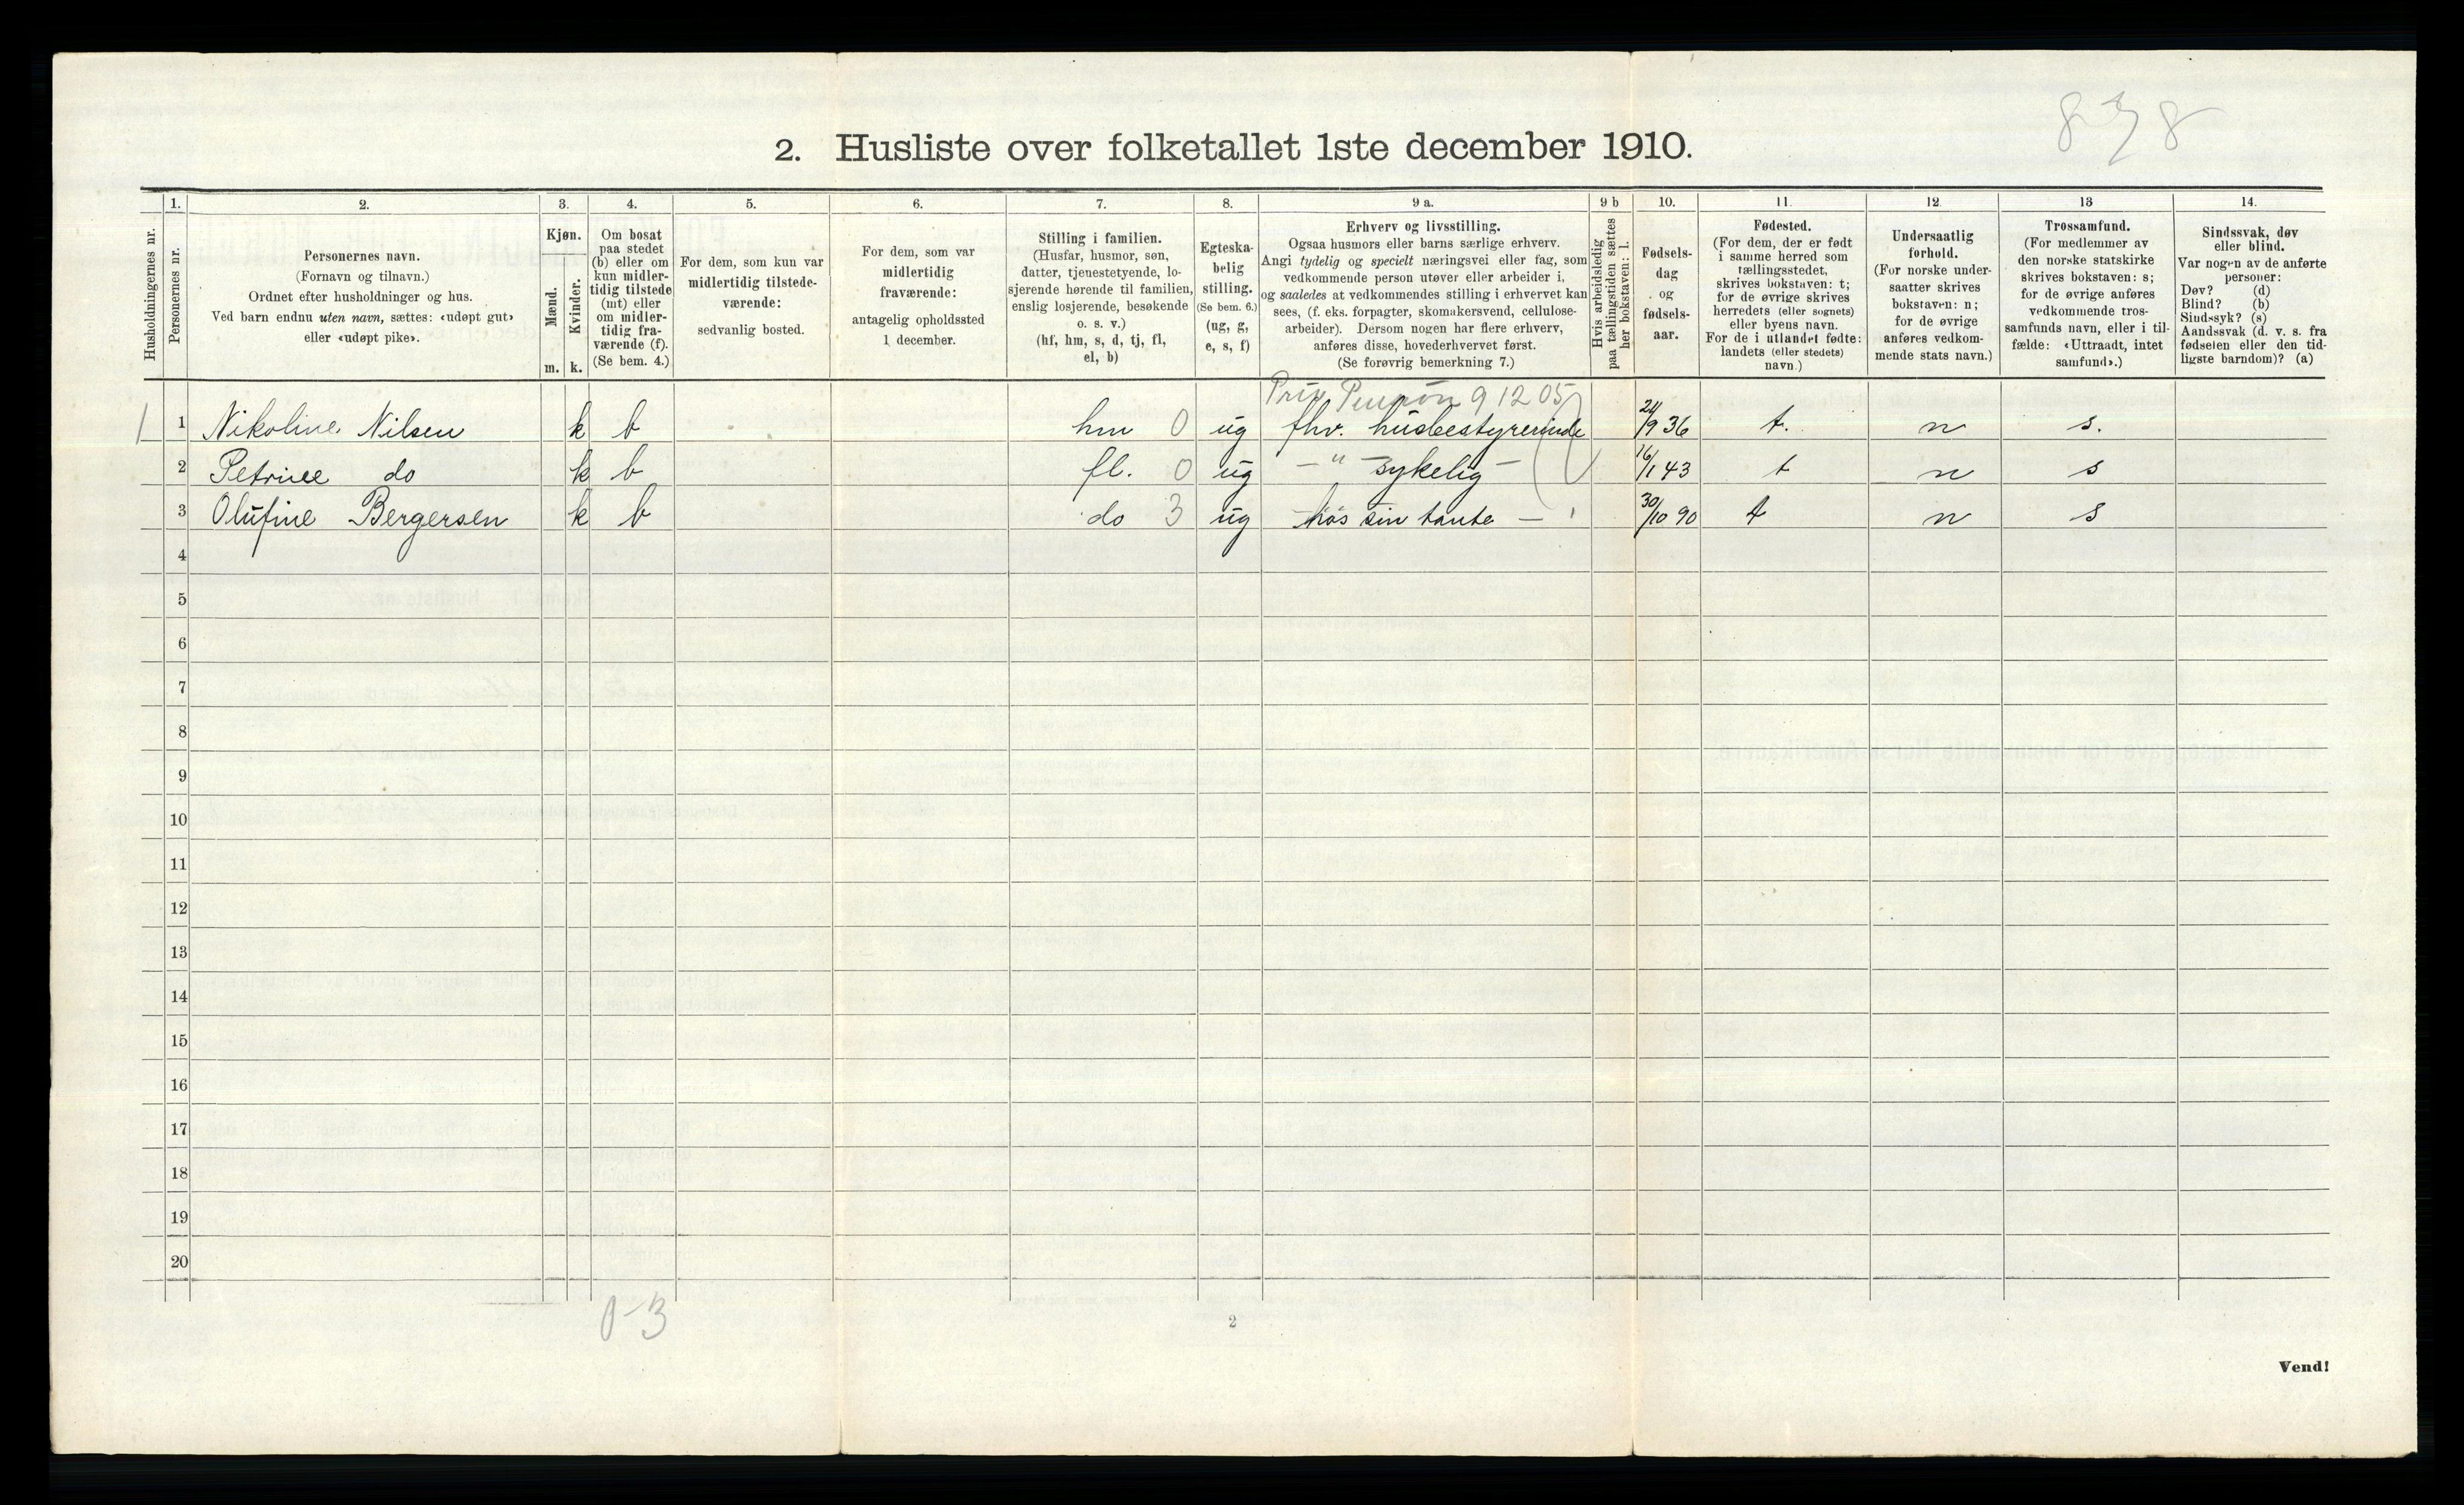 838
2. Husliste over folketallet 1ste december 1910.
Husholdningernes nr.
1.
Personernes nr.
2.
Personernes navn.
(Fornavn og tilnavn.)
Ordnet efter husholdninger og hus.
Ved barn endnu uten navn, sættes: «udøpt gut»
eller «udøpt pike».
3.
Kjøn.
Mænd.
Kvinder.
m. k.
4.
Om bosat
paa stedet
(b) eller om
kun midler-
tidig tilstede
(mt) eller
om midler-
tidig fra-
værende (f).
(Se bem. 4.)
5.
For dem, som kun var
midlertidig tilstede-
værende:
sedvanlig bosted.
6.
For dem, som var
midlertidig
fraværende:
antagelig opholdssted
1 december.
7.
Stilling i familien.
(Husfar, husmor, søn,
datter, tjenestetyende, lo-
sjerende hørende til familien,
enslig losjerende, besøkende
o. s. v.)
(hf, hm, s, d, tj, fl,
el, b)
8.
Egteska-
belig
stilling.
(Se bem. 6.)
(ug, g,
e, s, f)
9 a.
Erhverv og livsstilling.
Ogsaa husmors eller barns særlige erhverv.
Angi tydelig og specielt næringsvei eller fag, som
vedkommende person utøver eller arbeider i,
og saaledes at vedkommendes stilling i erhvervet kan
sees, (f. eks. forpagter, skomakersvend, cellulose-
arbeider). Dersom nogen har flere erhverv,
anføres disse, hovederhvervet først.
(Se forøvrig bemerkning 7.)
9 b
Hvis arbeidsledig
paa tællingstiden sættes
her bokstaven: l.
10.
Fødsels-
dag
og
fødsels-
aar.
11.
Fødested.
(For dem, der er født
i samme herred som
tællingsstedet,
skrives bokstaven: t;
for de øvrige skrives
herredets (eller sognets)
eller byens navn.
For de i utlandet fødte:
landets (eller stedets)
navn.)
12.
Undersaatlig
forhold.
(For norske under-
saatter skrives
bokstaven: n;
for de øvrige
anføres vedkom-
mende stats navn.)
13
Trossamfund.
(For medlemmer av
den norske statskirke
skrives bokstaven: s;
for de øvrige anføres
vedkommende tros-
samfunds navn, eller i til-
fælde: «Uttraadt, intet
samfund».)
14.
Sindssvak, døv
eller blind.
Var nogen av de anførte
personer:
Døv? (d)
Blind? (b)
Sindssyk? (s)
Aandssvak (d. v. s. fra
fødselen eller den tid-
ligste barndom)? (a)
Priv Pension 9 12 05
1 1 Nikoline Nilsen k b hm 0 ug fhv. husbestyrerinde 21/9 36 t. n s.
2 Petrine do k b fl. 0 ug — " — sykelig — 16/1 43 t n s
3 Olufine Bergersen k b do 3 ug hos sin tante — 30/10 90 t n s
4
5
6
7
8
9
10
11
12
13
14
15
16
17
18
19
20
0-3
2
Vend!